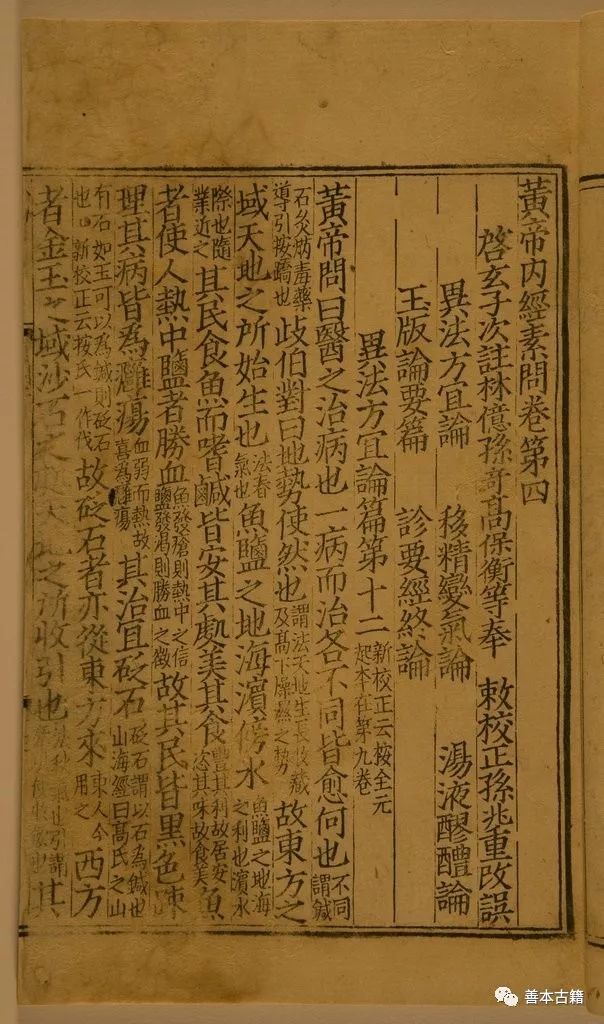 黃帝内經素問卷第四
啓玄子次註林億孫竒高保衡等奉 敕校正孫兆重改誤
異法方宜論 移精變氣論 湯液醪醴論
玉版論要篇 診要經終論
異法方宜論篇第十二 新校正云按全元起本在第九卷
黃帝問曰醫之治病也一病而治各不同皆愈何也 不同謂鍼
石灸焫毒藥導引按蹻也 歧伯對曰地勢使然也 謂法天地生長收藏及高下燥濕之勢 故東方之
域天地之所始生也 法春氣也 魚鹽之地海濵傍水 魚鹽之地海之利也濵水
際也隨業近之 其民食魚而嗜鹹皆安其處美其食 豐其利故居安恣其味故食美 魚
者使人熱中鹽者勝血 魚發瘡則熱中之信鹽發渴則勝血之徵 故其民皆黑色疎
理其病皆為癰瘍 血弱而熱故喜為癰瘍 其治宜砭石 砭石謂以石為鍼也山海經曰高氏之山
有石如玉可以為鍼則砭石也新校正云按氏一作伐 故砭石者亦從東方來 東人今用之 西方
者金玉之域沙石之處天地之所收引也 引謂 其
善本古籍